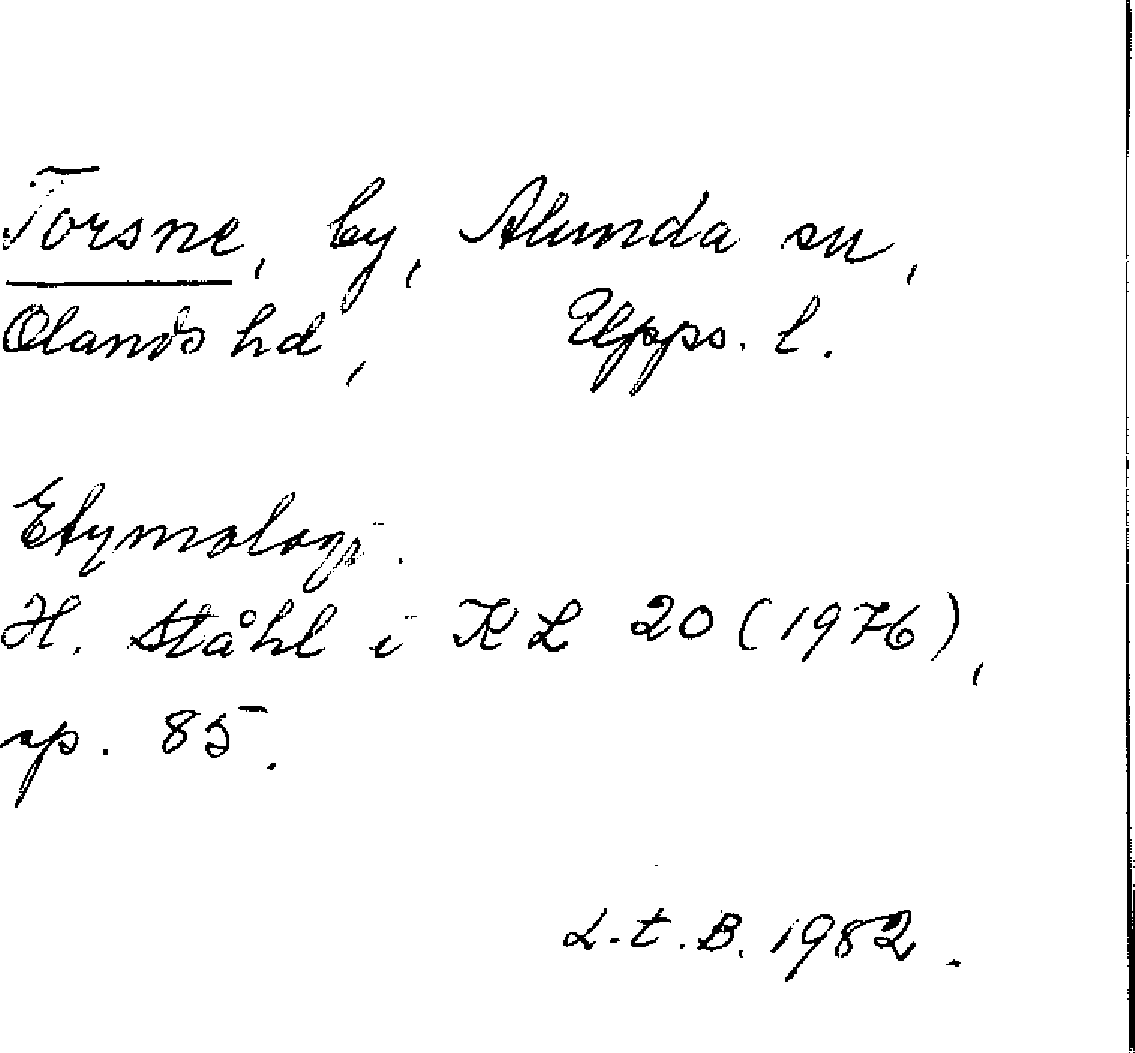 Torsne, by, Alunda sn,
Olands hd, Upps. l.
Etymologi.
H. Ståhl i KL 20 (1976),
sp. 85.
L.t.B. 1982.